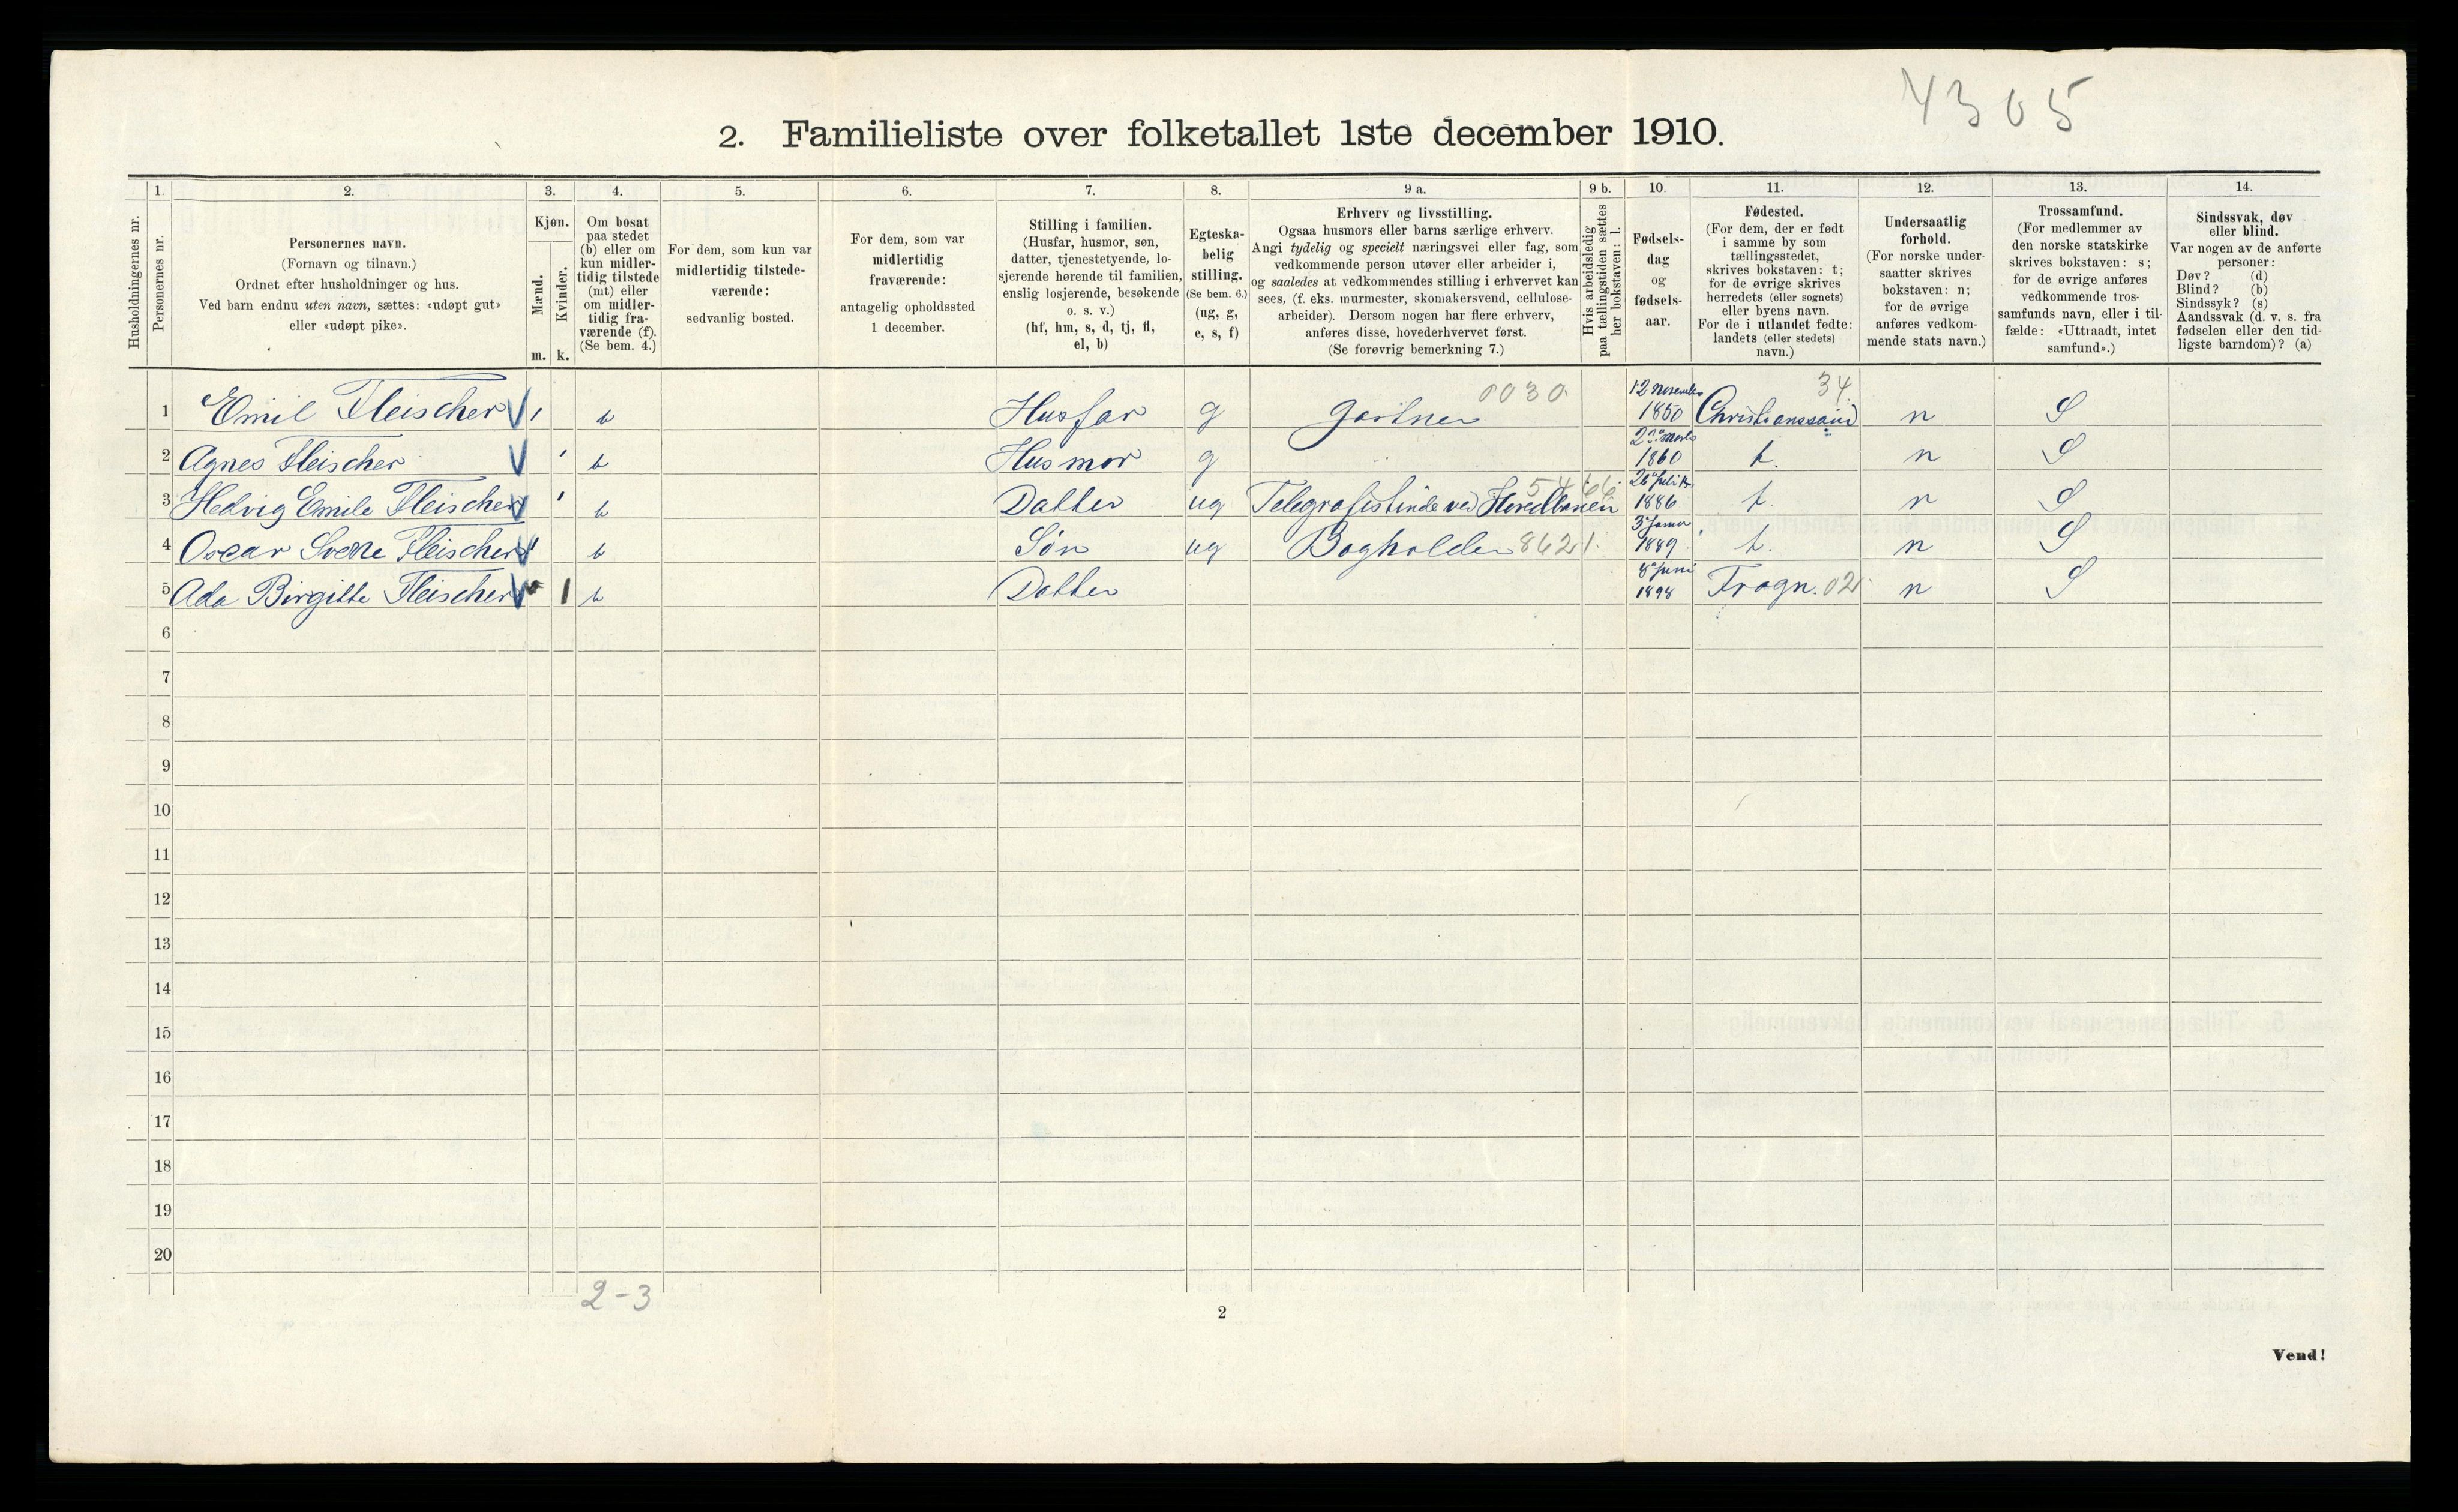 4305
2. Familieliste over folketallet 1ste december 1910.
1. 2. 3. 4. 5. 6. 7. 8. 9 a. 9 b. 10. 11. 12. 13. 14.
Husholdningernes nr.
Personernes nr.
Personernes navn.
(Fornavn og tilnavn.)
Ordnet efter husholdninger og hus.
Ved barn endnu uten navn, sættes: «udøpt gut»
eller «udøpt pike».
Kjøn.
Mænd.
Kvinder.
m. k.
Om bosat
paa stedet
(b) eller om
kun midler-
tidig tilstede
(mt) eller
om midler-
tidig fra-
værende (f).
(Se bem. 4.)
For dem, som kun var
midlertidig tilstede-
værende:
sedvanlig bosted.
For dem, som var
midlertidig
fraværende:
antagelig opholdssted
1 december.
Stilling i familien.
(Husfar, husmor, søn,
datter, tjenestetyende, lo-
sjerende hørende til familien,
enslig losjerende, besøkende
o. s. v.)
(hf, hm, s, d, tj, fl,
el, b)
Egteska-
belig
stilling.
(Se bem. 6.)
(ug, g,
e, s, f)
Erhverv og livsstilling.
Ogsaa husmors eller barns særlige erhverv.
Angi tydelig og specielt næringsvei eller fag, som
vedkommende person utøver eller arbeider i,
og saaledes at vedkommendes stilling i erhvervet kan
sees, (f. eks. murmester, skomakersvend, cellulose-
arbeider). Dersom nogen har flere erhverv,
anføres disse, hovederhvervet først.
(Se forøvrig bemerkning 7.)
Hvis arbeidsledig
paa tællingstiden sættes
her bokstaven: l.
Fødsels-
dag
og
fødsels-
aar.
Fødested.
(For dem, der er født
i samme by som
tællingsstedet,
skrives bokstaven: t;
for de øvrige skrives
herredets (eller sognets)
eller byens navn.
For de i utlandet fødte:
landets (eller stedets)
navn.)
Undersaatlig
forhold.
(For norske under-
saatter skrives
bokstaven: n;
for de øvrige
anføres vedkom-
mende stats navn.)
Trossamfund.
(For medlemmer av
den norske statskirke
skrives bokstaven: s;
for de øvrige anføres
vedkommende tros-
samfunds navn, eller i til-
fælde: «Uttraadt, intet
samfund».)
Sindssvak, døv
eller blind.
Var nogen av de anførte
personer:
Døv? (d)
Blind? (b)
Sindssyk? (s)
Aandssvak (d. v. s. fra
fødselen eller den tid-
ligste barndom)? (a)
1 Emil Fleischer V 1 b Husfar g Gartner 0030 12 november 1850 Christianssand 34 n S
2 Agnes Fleischer V 1 b Husmor g marts 1860 t. n S
3 Hedvig Emile Fleischer V 1 b Datter ug Telegrafistinde ved Hovedbanen 5466 26 juli 1886 t. n S
4 Oscar Fleischer V 1 b Søn ug Bogholder 8621. 3 1889 t. n S
5 Ada Birgitte Fleischer V 1 b Datter 8 juni 1898 Frogn. 02 n S
6
7
8
9
10
11
12
13
14
15
16
17
18
19
20
2-3
2
Vend!